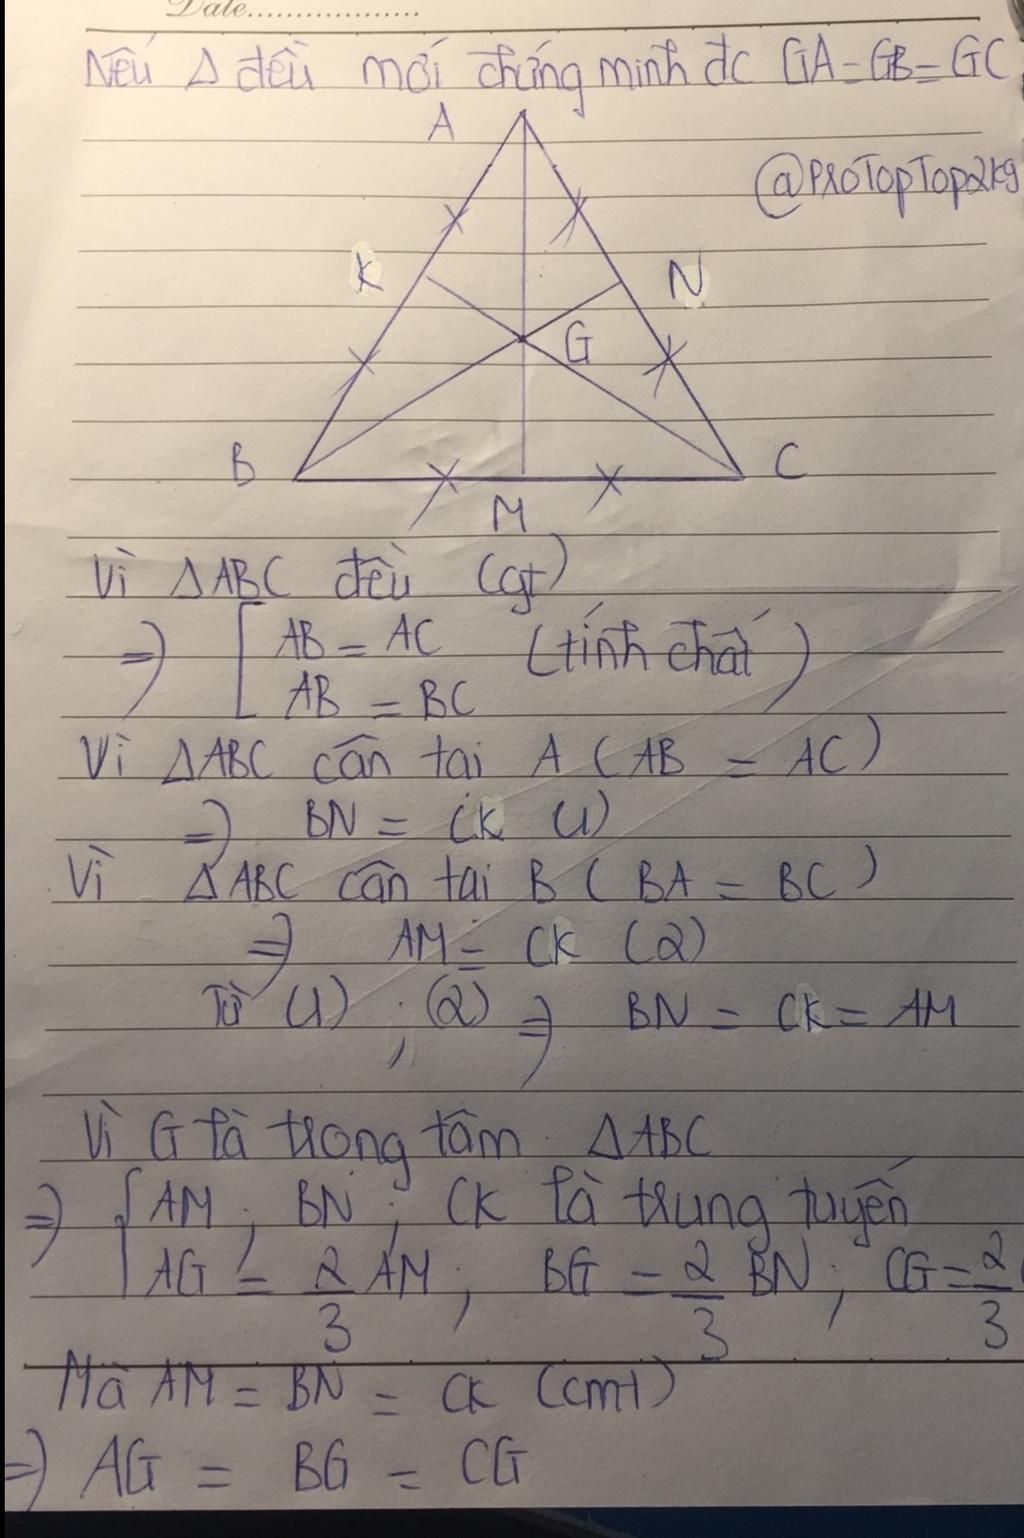 Date..................
Nếu Δ đều mới chứng minh đc GA=GB=GC
A
@ProTopTop2kg
K
N
G
B
C
M
Vì ΔABC đều (gt)
=> [ AB = AC (tính chất)
AB = BC
Vì ΔABC cân tại A (AB = AC)
=> BN = CK (1)
Vì ΔABC cân tại B (BA = BC)
=> AM = CK (2)
Từ (1) ; (2) => BN = CK = AM
Vì G là trọng tâm ΔABC
=> { AM ; BN ; CK là trung tuyến
AG = 2/3 AM ; BG = 2/3 BN ; CG = 2/3
Mà AM = BN = CK (cmt)
=> AG = BG = CG